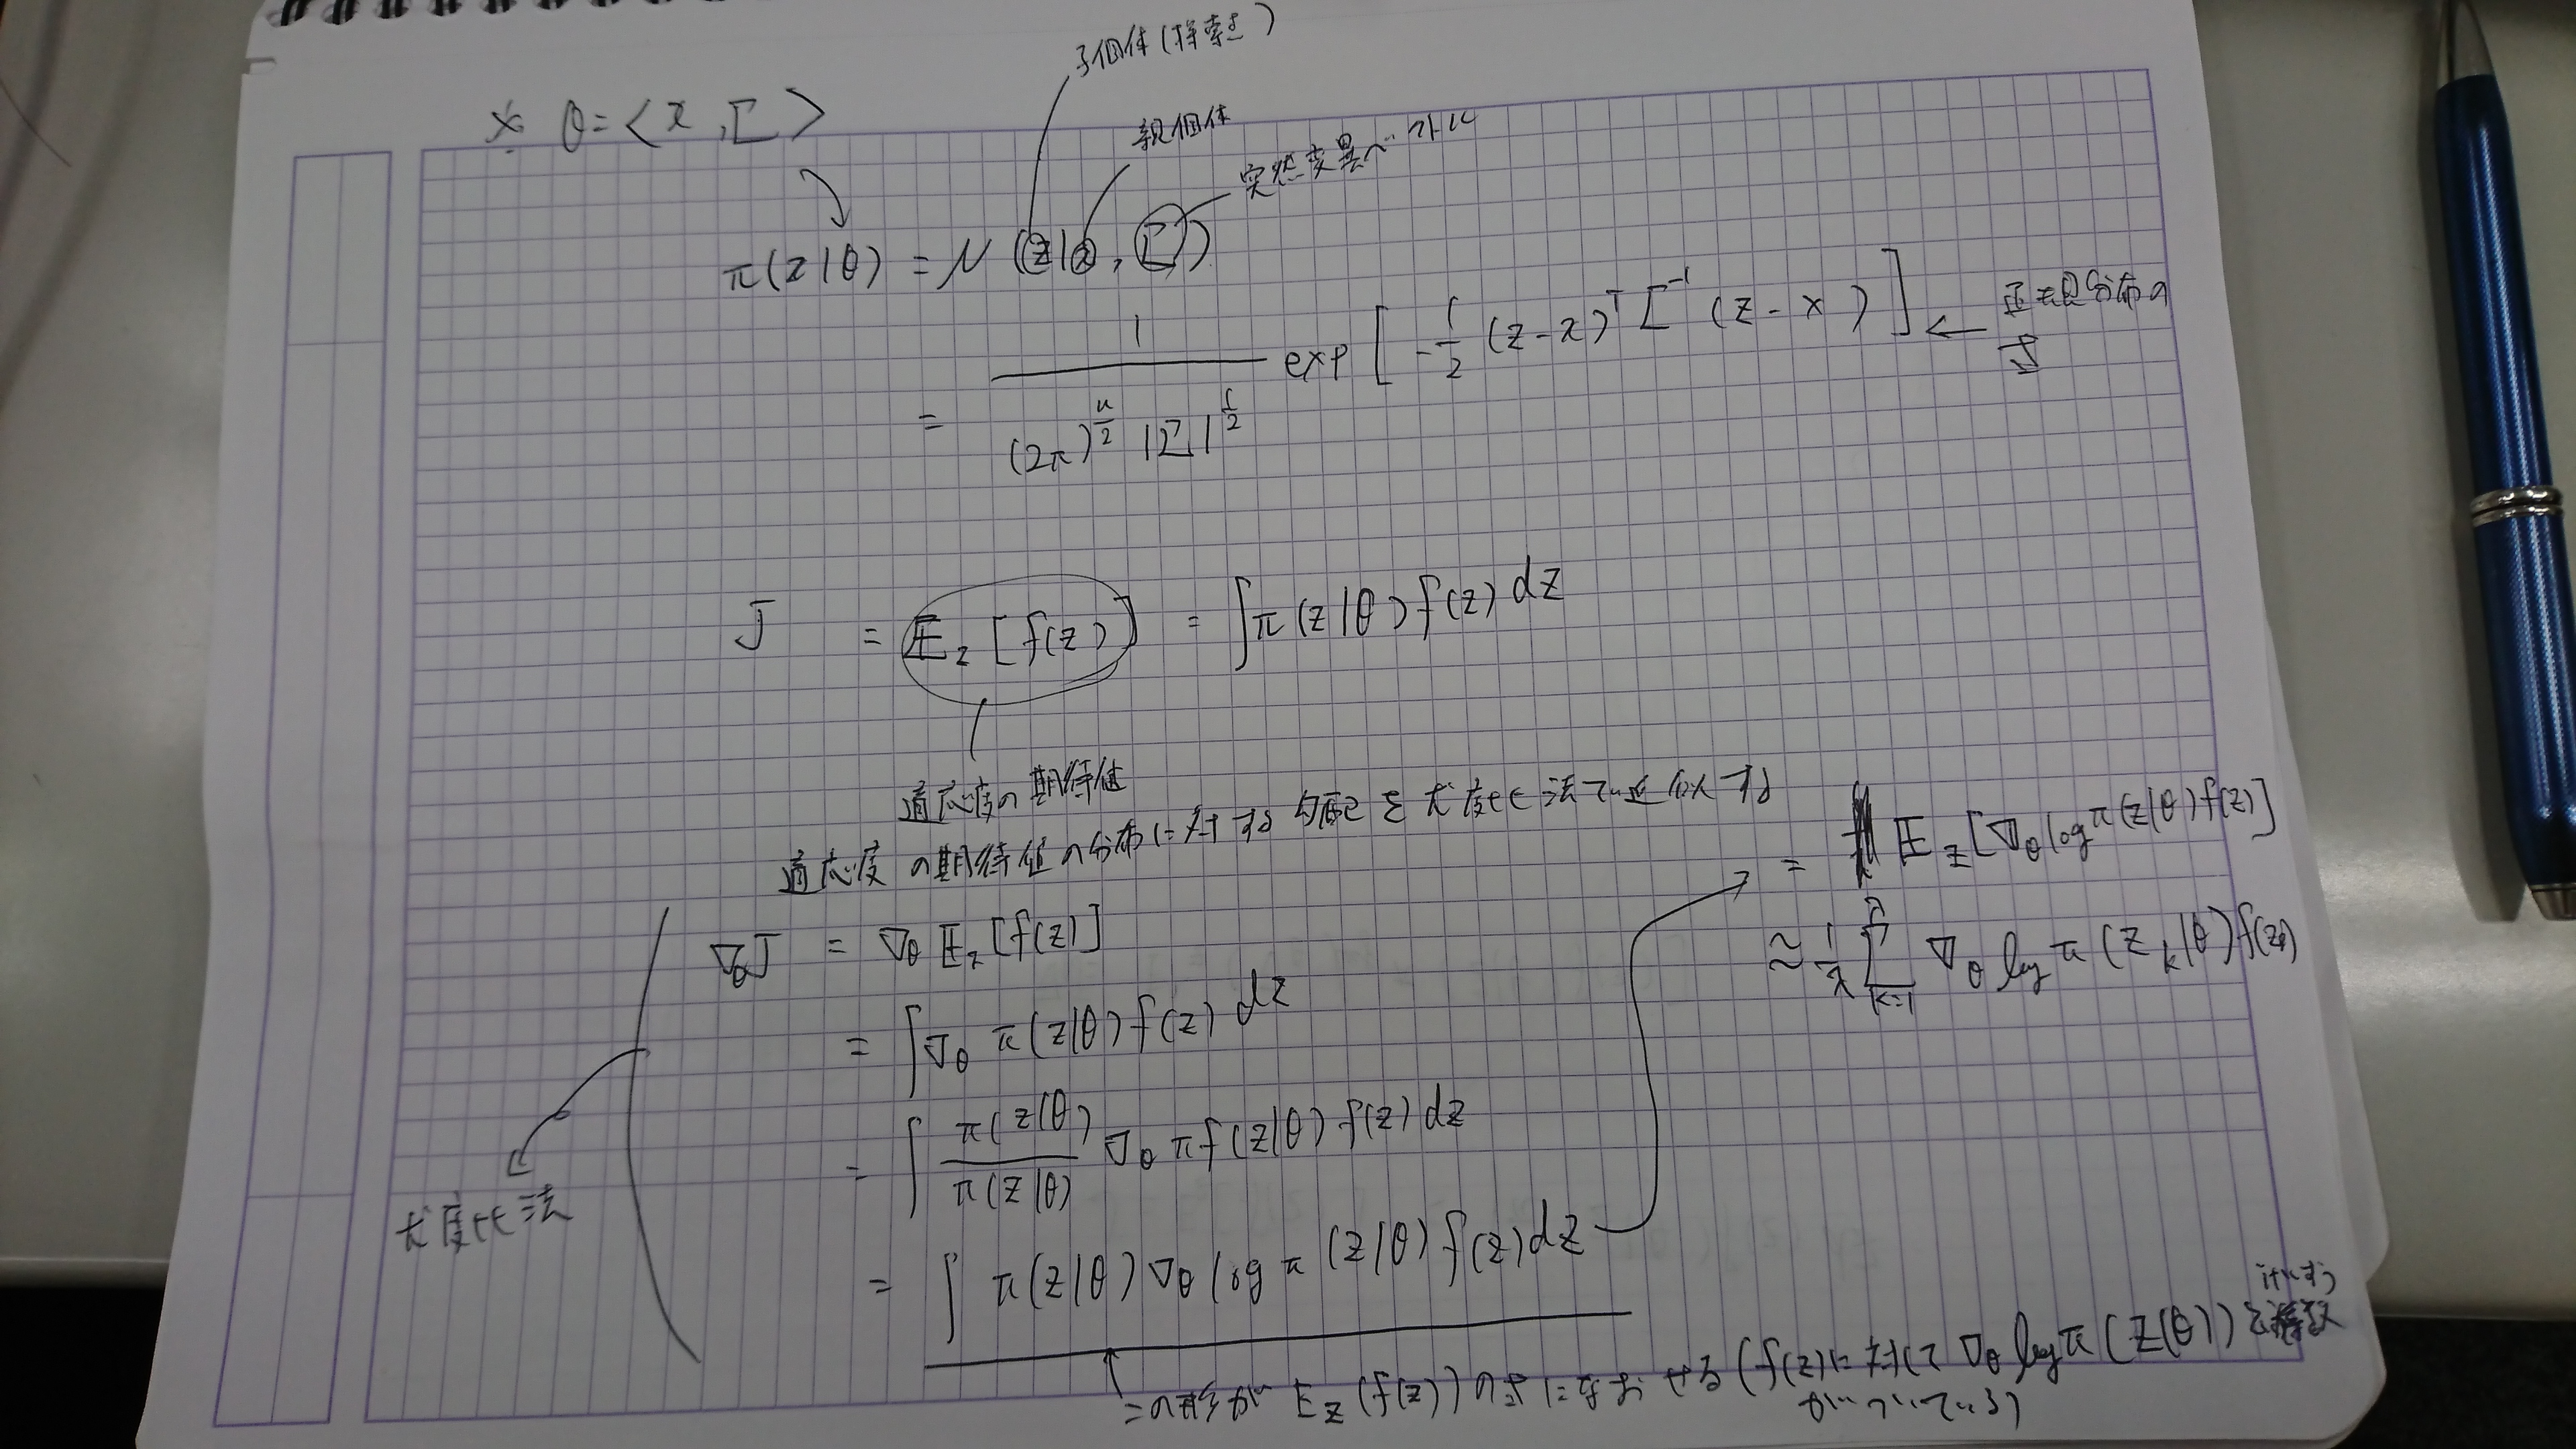 子個体(探索点)
※ θ=<x,Σ>
親個体
突然変異ベクトル
π(z|θ) = N(z|x, Σ)
= 1/((2π)^{n/2} |Σ|^{1/2}) exp[-1/2 (z-x)^T Σ^{-1} (z-x)] ← 正規分布の式
J = E_z[f(z)] = ∫π(z|θ)f(z)dz
適応度の期待値
適応度の期待値の分布に対する勾配を尤度比法で近似する
∇_θJ = ∇_θ E_z[f(z)]
= ∫∇_θ π(z|θ)f(z)dz
= ∫ π(z|θ)/π(z|θ) ∇_θ πf(z|θ)f(z)dz
= ∫ π(z|θ)∇_θ log π(z|θ)f(z)dz
尤度比法
= E_z[∇_θ log π(z|θ)f(z)]
≈ 1/λ Σ_{k=1}^{λ} ∇_θ log π(z_k|θ)f(z_k)
この形が E_z(f(z))の式になおせる(f(z)に対して ∇_θ log π(z|θ))と係数
がついている)